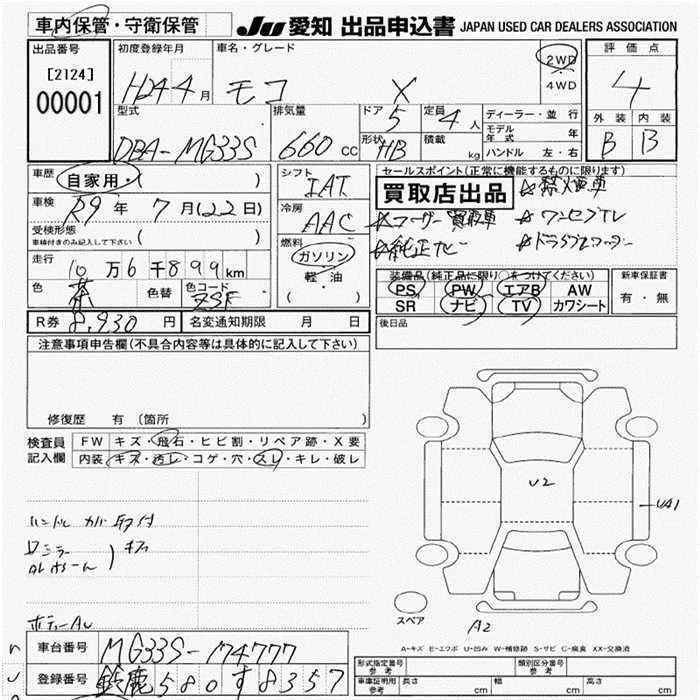 車内保管・守衛保管
JU 愛知 出品申込書 JAPAN USED CAR DEALERS ASSOCIATION
出品番号
[2124]
00001
初度登録年月
H24 4 月
車名・グレード
モコ X
2WD
4WD
評価点
4
外装 内装
B B
型式
DBA-MG33S
排気量
660 cc
ドア
5
定員
4 人
形状
HB
積載
kg
ディーラー・並行
モデル年式 年
ハンドル 左・右
車歴
自家用・( )
車検
R9 年 7 月(22日)
受検形態
車検付きのみ記入して下さい ( )
走行
10 万 6 千 899 km
色
茶
色替
色コード
ZSF
シフト
IAT
冷房
AAC
燃料
ガソリン
軽油
( )
セールスポイント(正常に機能するものに限ります)
買取店出品
☆禁煙車
☆買取車
☆ワンセグTV
☆純正ナビ
装備品(純正品に限り○をつけてください)
PS PW エアB AW
SR ナビ TV カワシート
新車保証書
有・無
R券 8,930 円
名変通知期限 月 日
後日品
注意事項申告欄(不具合内容等は具体的に記入して下さい)
修復歴 有 (箇所 )
検査員記入欄
FW キズ・飛石・ヒビ割・リペア跡・X要
内装 キズ・汚レ・コゲ・穴・スレ・キレ・破レ
ハンドルカバー取付
キズ
U2
UA1
スペア
A2
A-キズ E-エクボ U-凹み W-補修跡 S-サビ C-腐食 XX-交換済
車台番号 MG33S-174777
登録番号 鈴鹿 580 す 8357
形式指定番号 参考
類別区分番号 参考
車庫証明用 参考
長さ cm
幅 cm
高さ cm